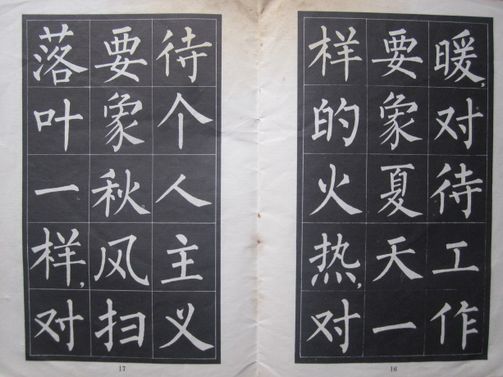 暖,对待工作
要象夏天一
样的火热,对
待个人主义
要象秋风扫
落叶一样,对
16
17